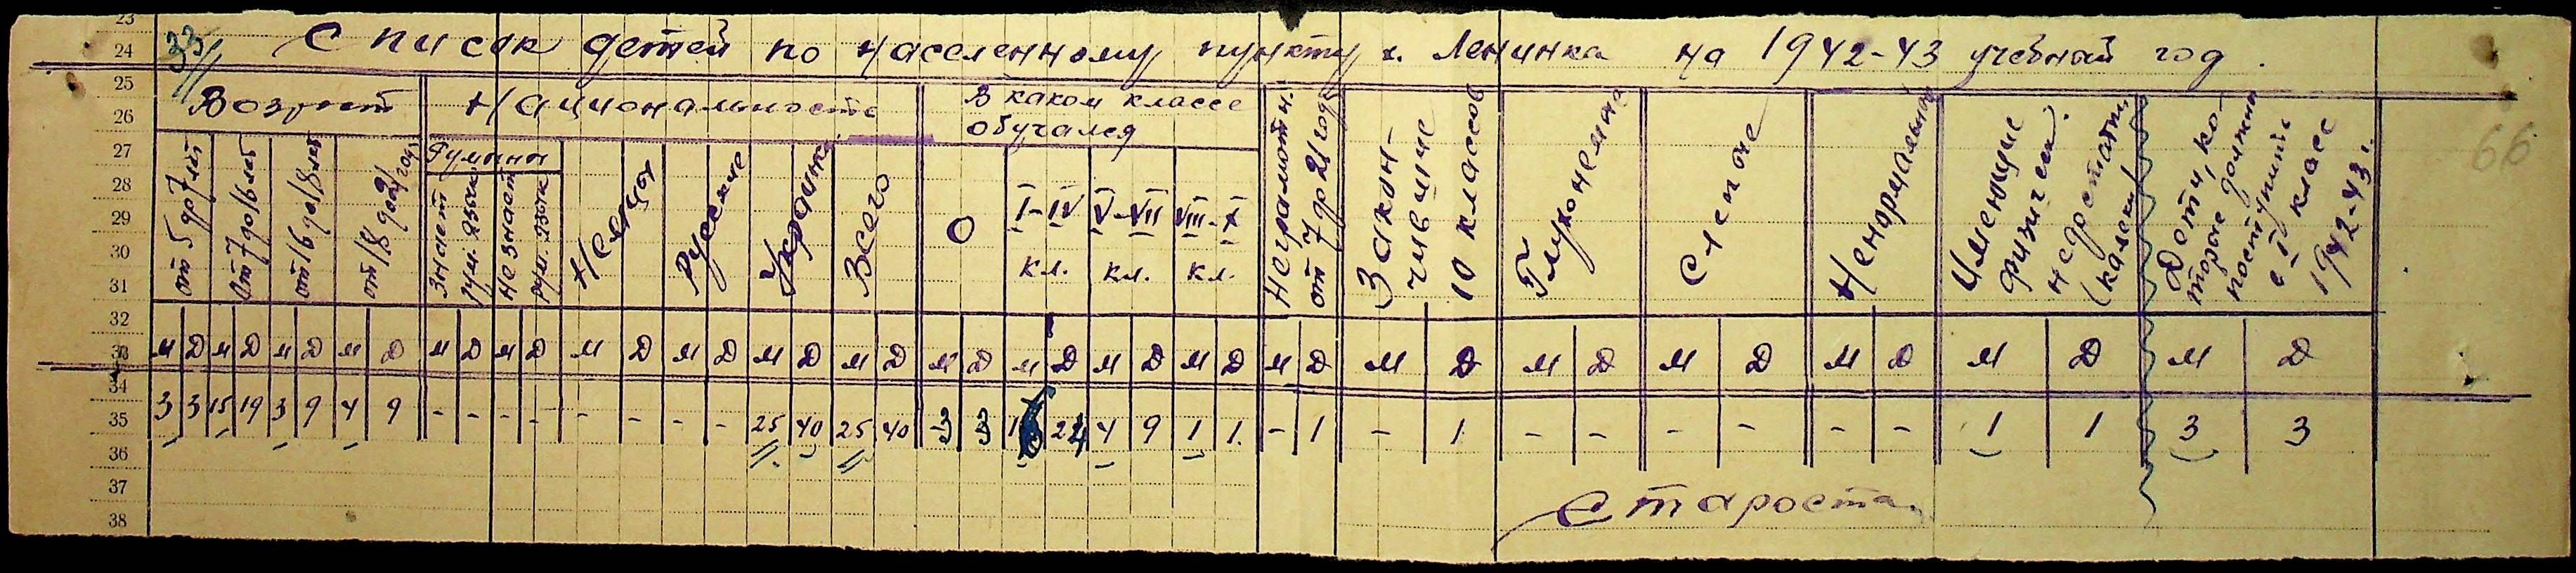 33 Список детей по населенному пункту х. Ленинка на 1942-43 учебный год.
66
Возраст
от 5 до 7 лет
от 7 до 16 лет
от 16 до 18 лет
от 18 до 21 года
Национальность
Румыны
знает рум. язык
не знает рум. язык
Немцы
Русские
Украинц.
Всего
В каком классе
обучался
0
I-IV кл.
V-VII кл.
VIII-X кл.
Неграмотн.
от 7 до 21 года
Закон-
чившие
10 классов
Глухонемые
Слепые
Ненормальные
Имеющие
физическ.
недостатки
(калеки)
Дети, ко-
торые должны
поступить
в I класс
1942-43 г.
м Д м Д м Д м Д м Д м Д м Д м Д м Д м Д м Д м Д м Д м Д м Д м Д м Д м Д м Д м Д м Д
3 3 15 19 3 9 4 9 - - - - - - - - 25 40 25 40 3 3 16 24 4 9 1 1. - 1 - 1 - - - - - - 1 1 3 3
Староста
23
24
25
26
27
28
29
30
31
32
33
34
35
36
37
38